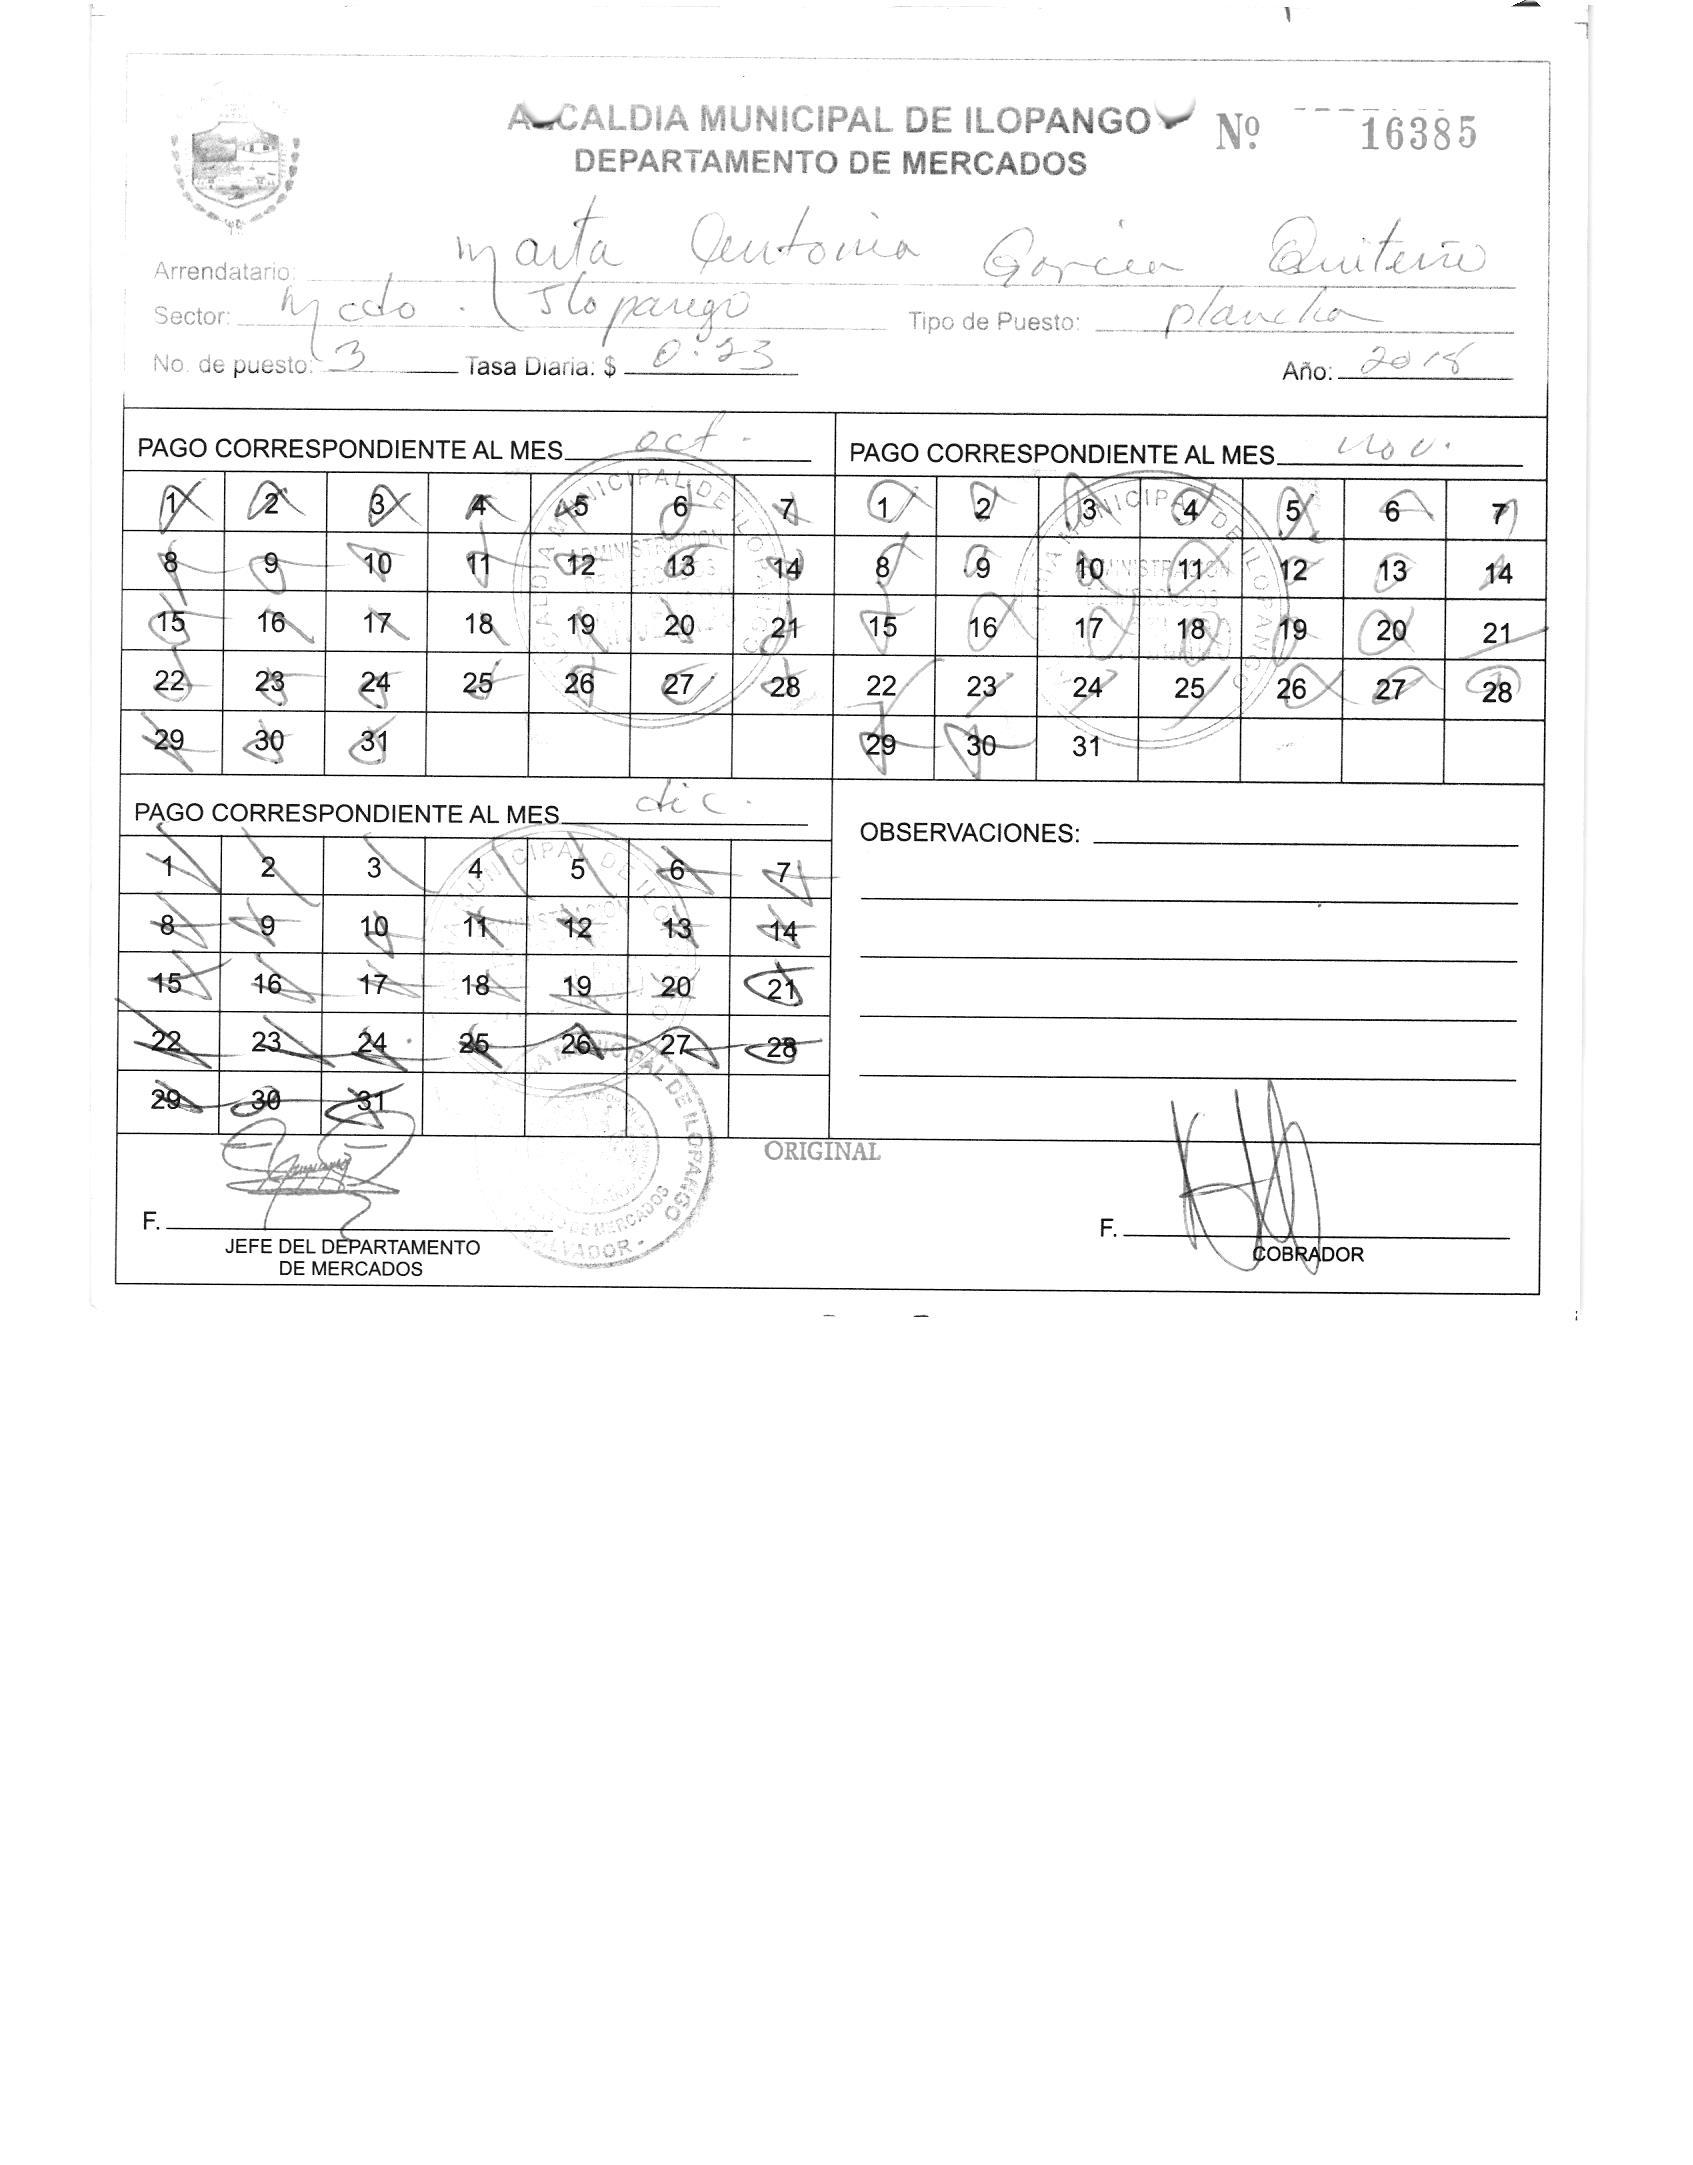 ALCALDIA MUNICIPAL DE ILOPANGO Nº 16385
DEPARTAMENTO DE MERCADOS
Arrendatario: Marta Antonia Garcia Quiteño
Sector: Mcdo. Ilopango Tipo de Puesto: plancha
No. de puesto: 3 Tasa Diaria: $ 0.23 Año: 2018
PAGO CORRESPONDIENTE AL MES oct.
1 2 3 4 5 6 7
8 9 10 11 12 13 14
15 16 17 18 19 20 21
22 23 24 25 26 27 28
29 30 31
PAGO CORRESPONDIENTE AL MES nov.
1 2 3 4 5 6 7
8 9 10 11 12 13 14
15 16 17 18 19 20 21
22 23 24 25 26 27 28
29 30 31
PAGO CORRESPONDIENTE AL MES dic.
1 2 3 4 5 6 7
8 9 10 11 12 13 14
15 16 17 18 19 20 21
22 23 24 25 26 27 28
29 30 31
OBSERVACIONES:
MUNICIPAL DE ILOPANGO
ADMINISTRACION
ORIGINAL
F.
JEFE DEL DEPARTAMENTO
DE MERCADOS
F.
COBRADOR